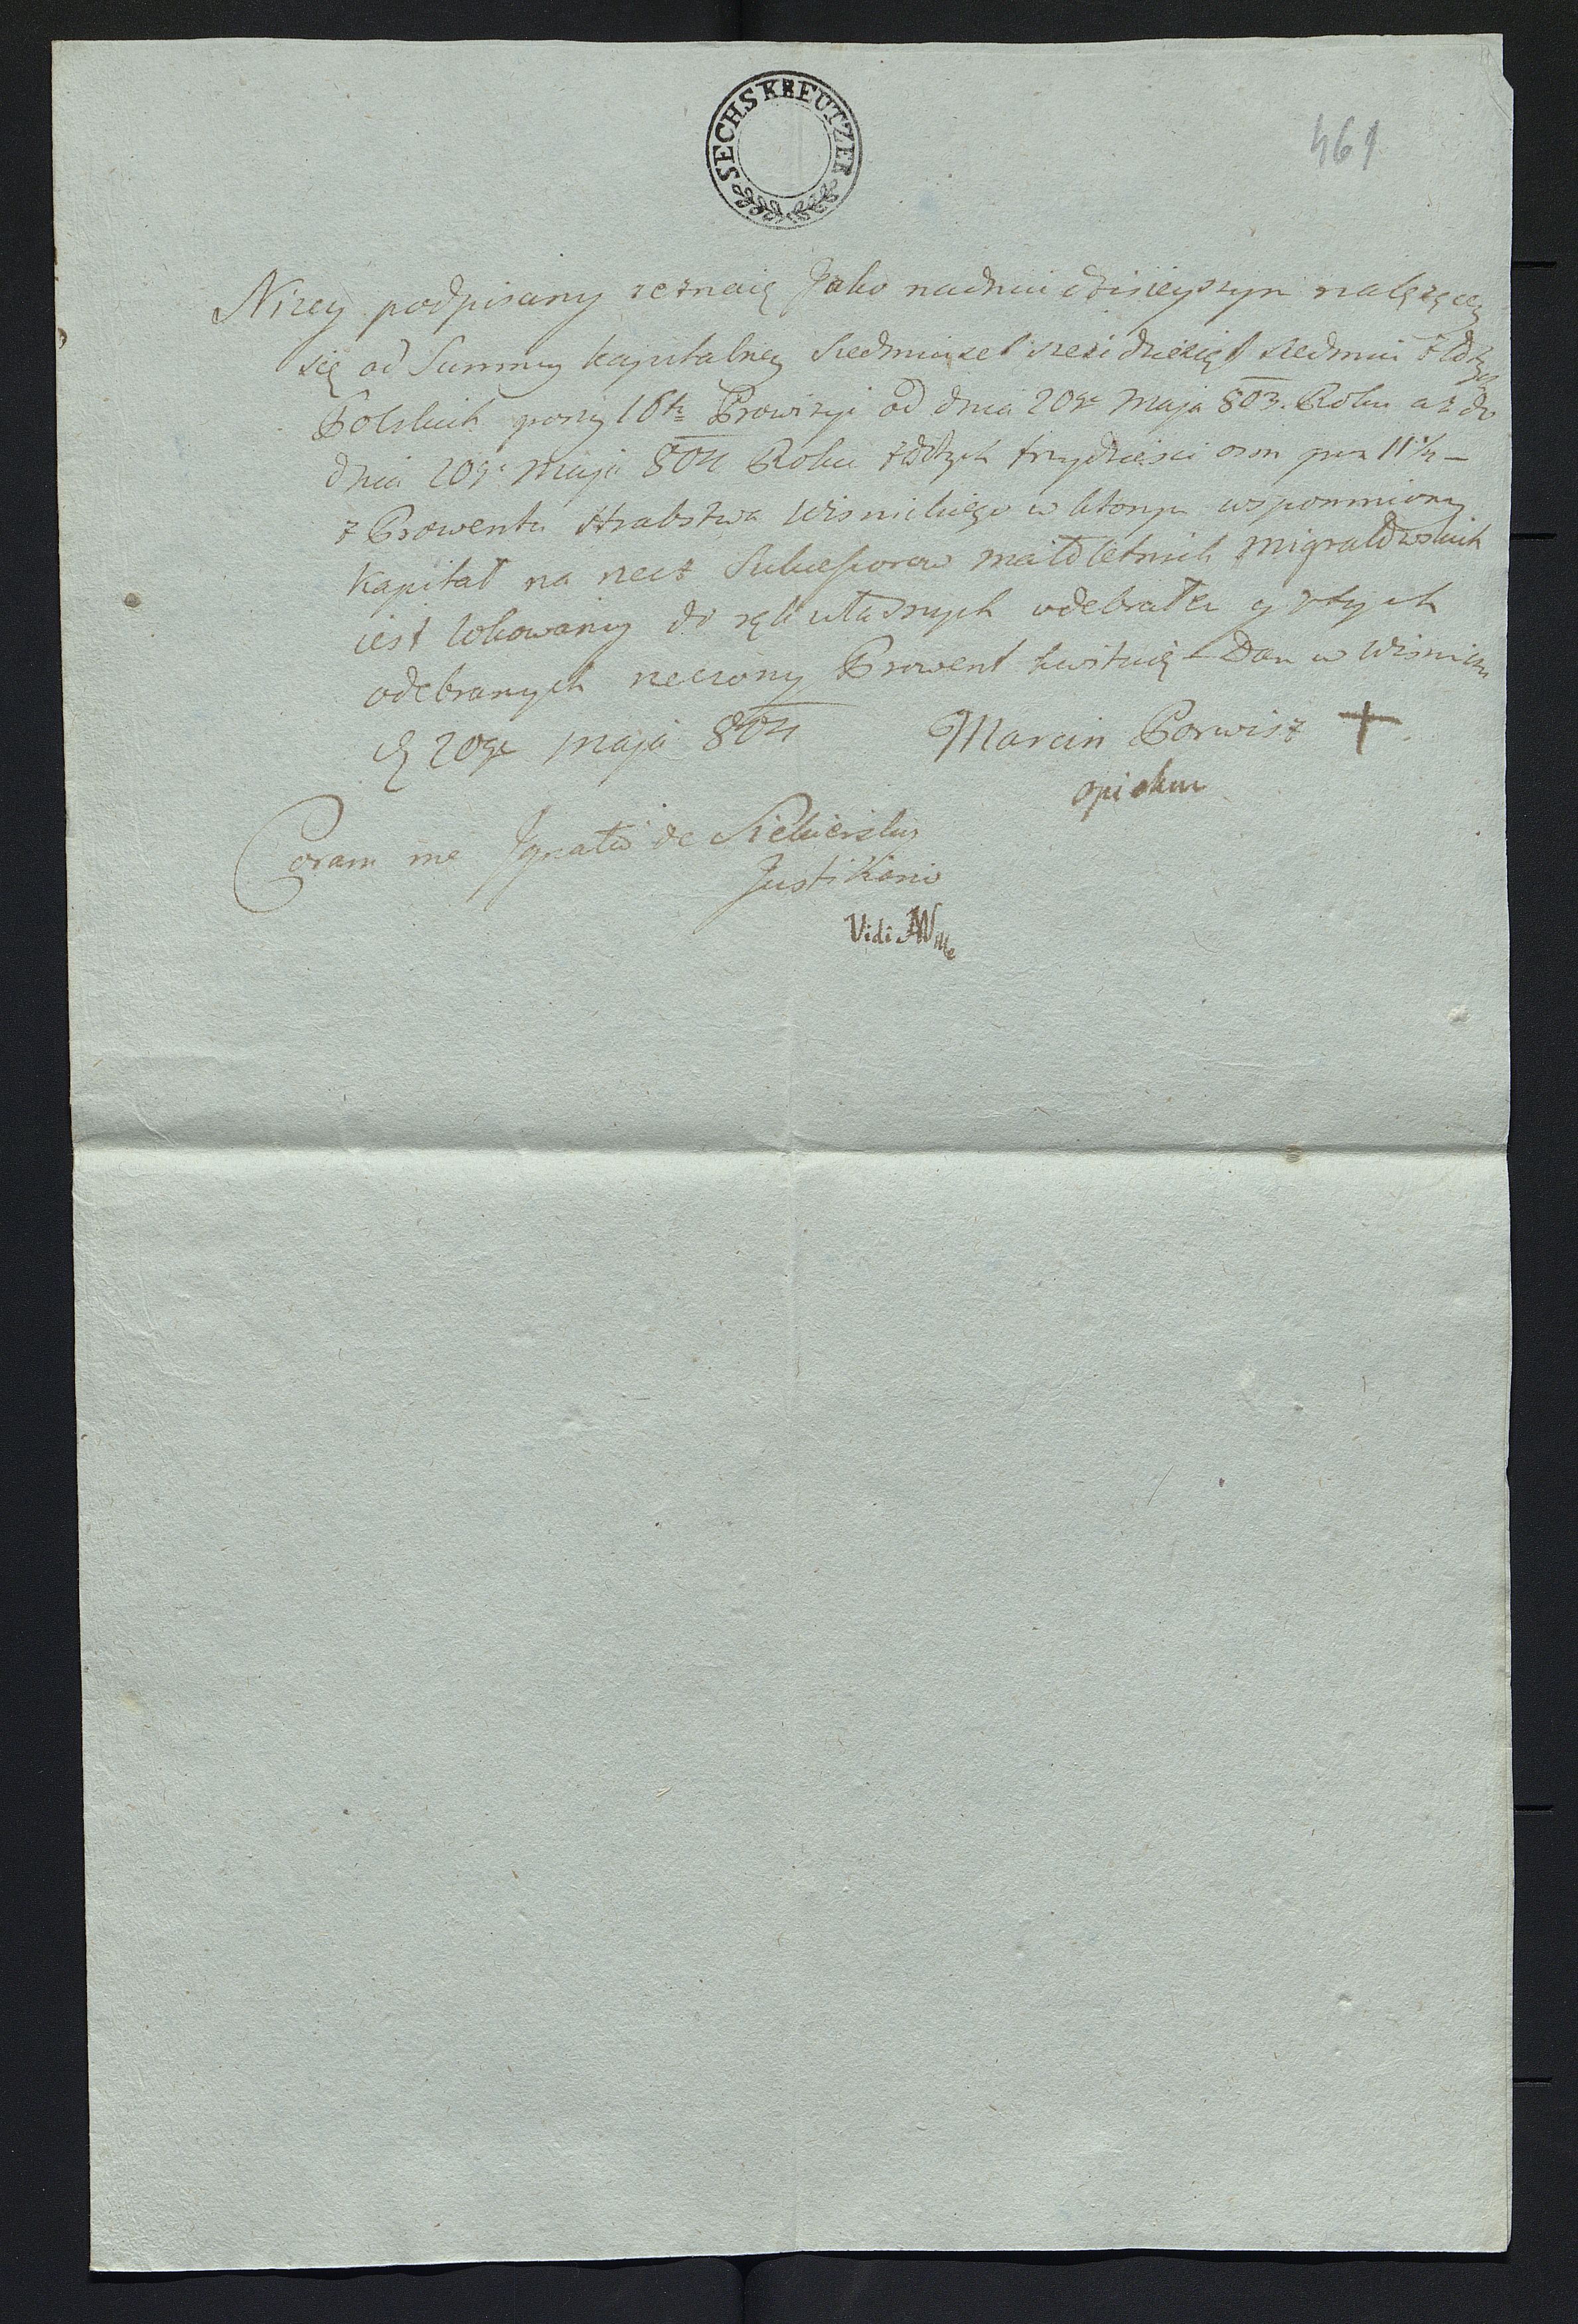 SECHS KREUTZER
461
Nizey podpisany zeznaię Jako na dniu dzisieyszym należącey
się od Summy kapitalney Siedmiuset sześcidziesiąt siedmiu Złotych
Polskich Prowizyi od dnia 20go Maja 803. Roku aż do
dnia 20go Maja 804 Roku złotych trzydzieści osm 11 1/2 –
z Prowentu Hrabstwa Wisnickiego w ktorym wspomniony
Kapitał na rzecz Sukcessorow małoletnich Migrałowskich
iest lokowany do rąk własnych odebrałem y z tych
odebranych rzeczony Prowent kwituię – Dan w Wisniczu
d 20go Maja 804 Marcin Porwisz +
opiekun
Coram me Ignatio de Siekierski
Justitiario
Vidi JWille